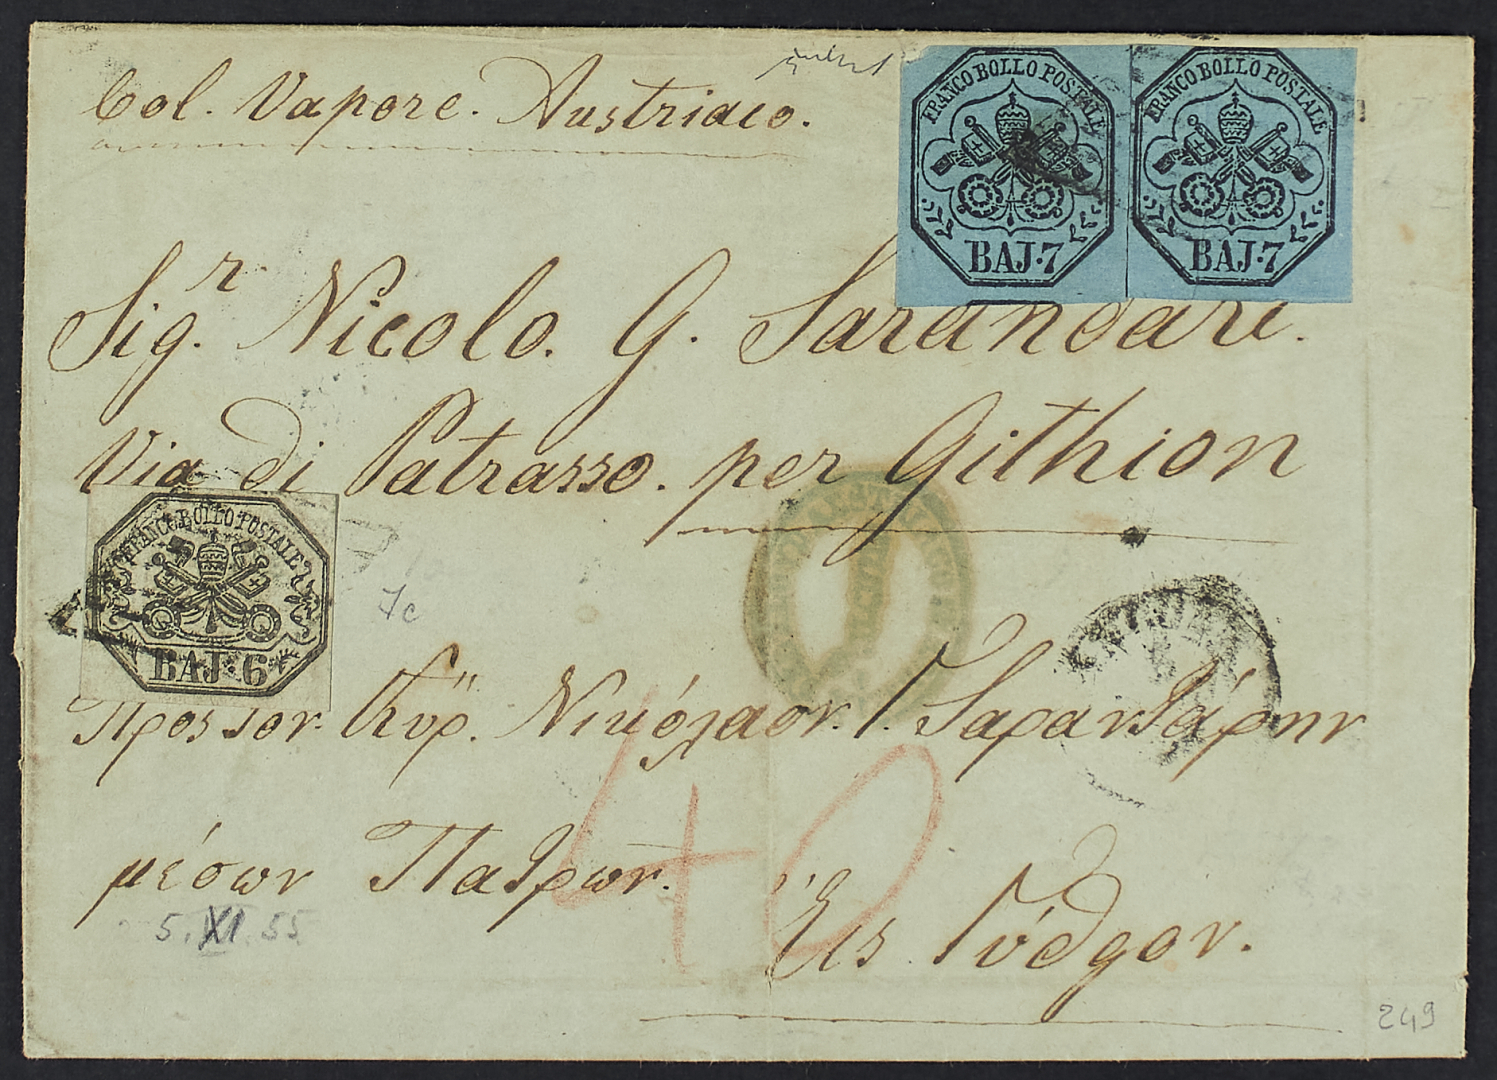 Col. Vapore. Austriaco.
FRANCO BOLLO POSTALE
BAJ. 7
FRANCO BOLLO POSTALE
BAJ. 7
Sig.r Nicolo. G. Sarandari.
Via di Patrasso. per Githion
FRANCO BOLLO POSTALE
BAJ. 6
7c
Προς τον. Κυρ. Νικόλαον. Γ. Σαρανδάρην
40
μέσων Πατρων.
5.XI.55
Εις Γύθγον.
249